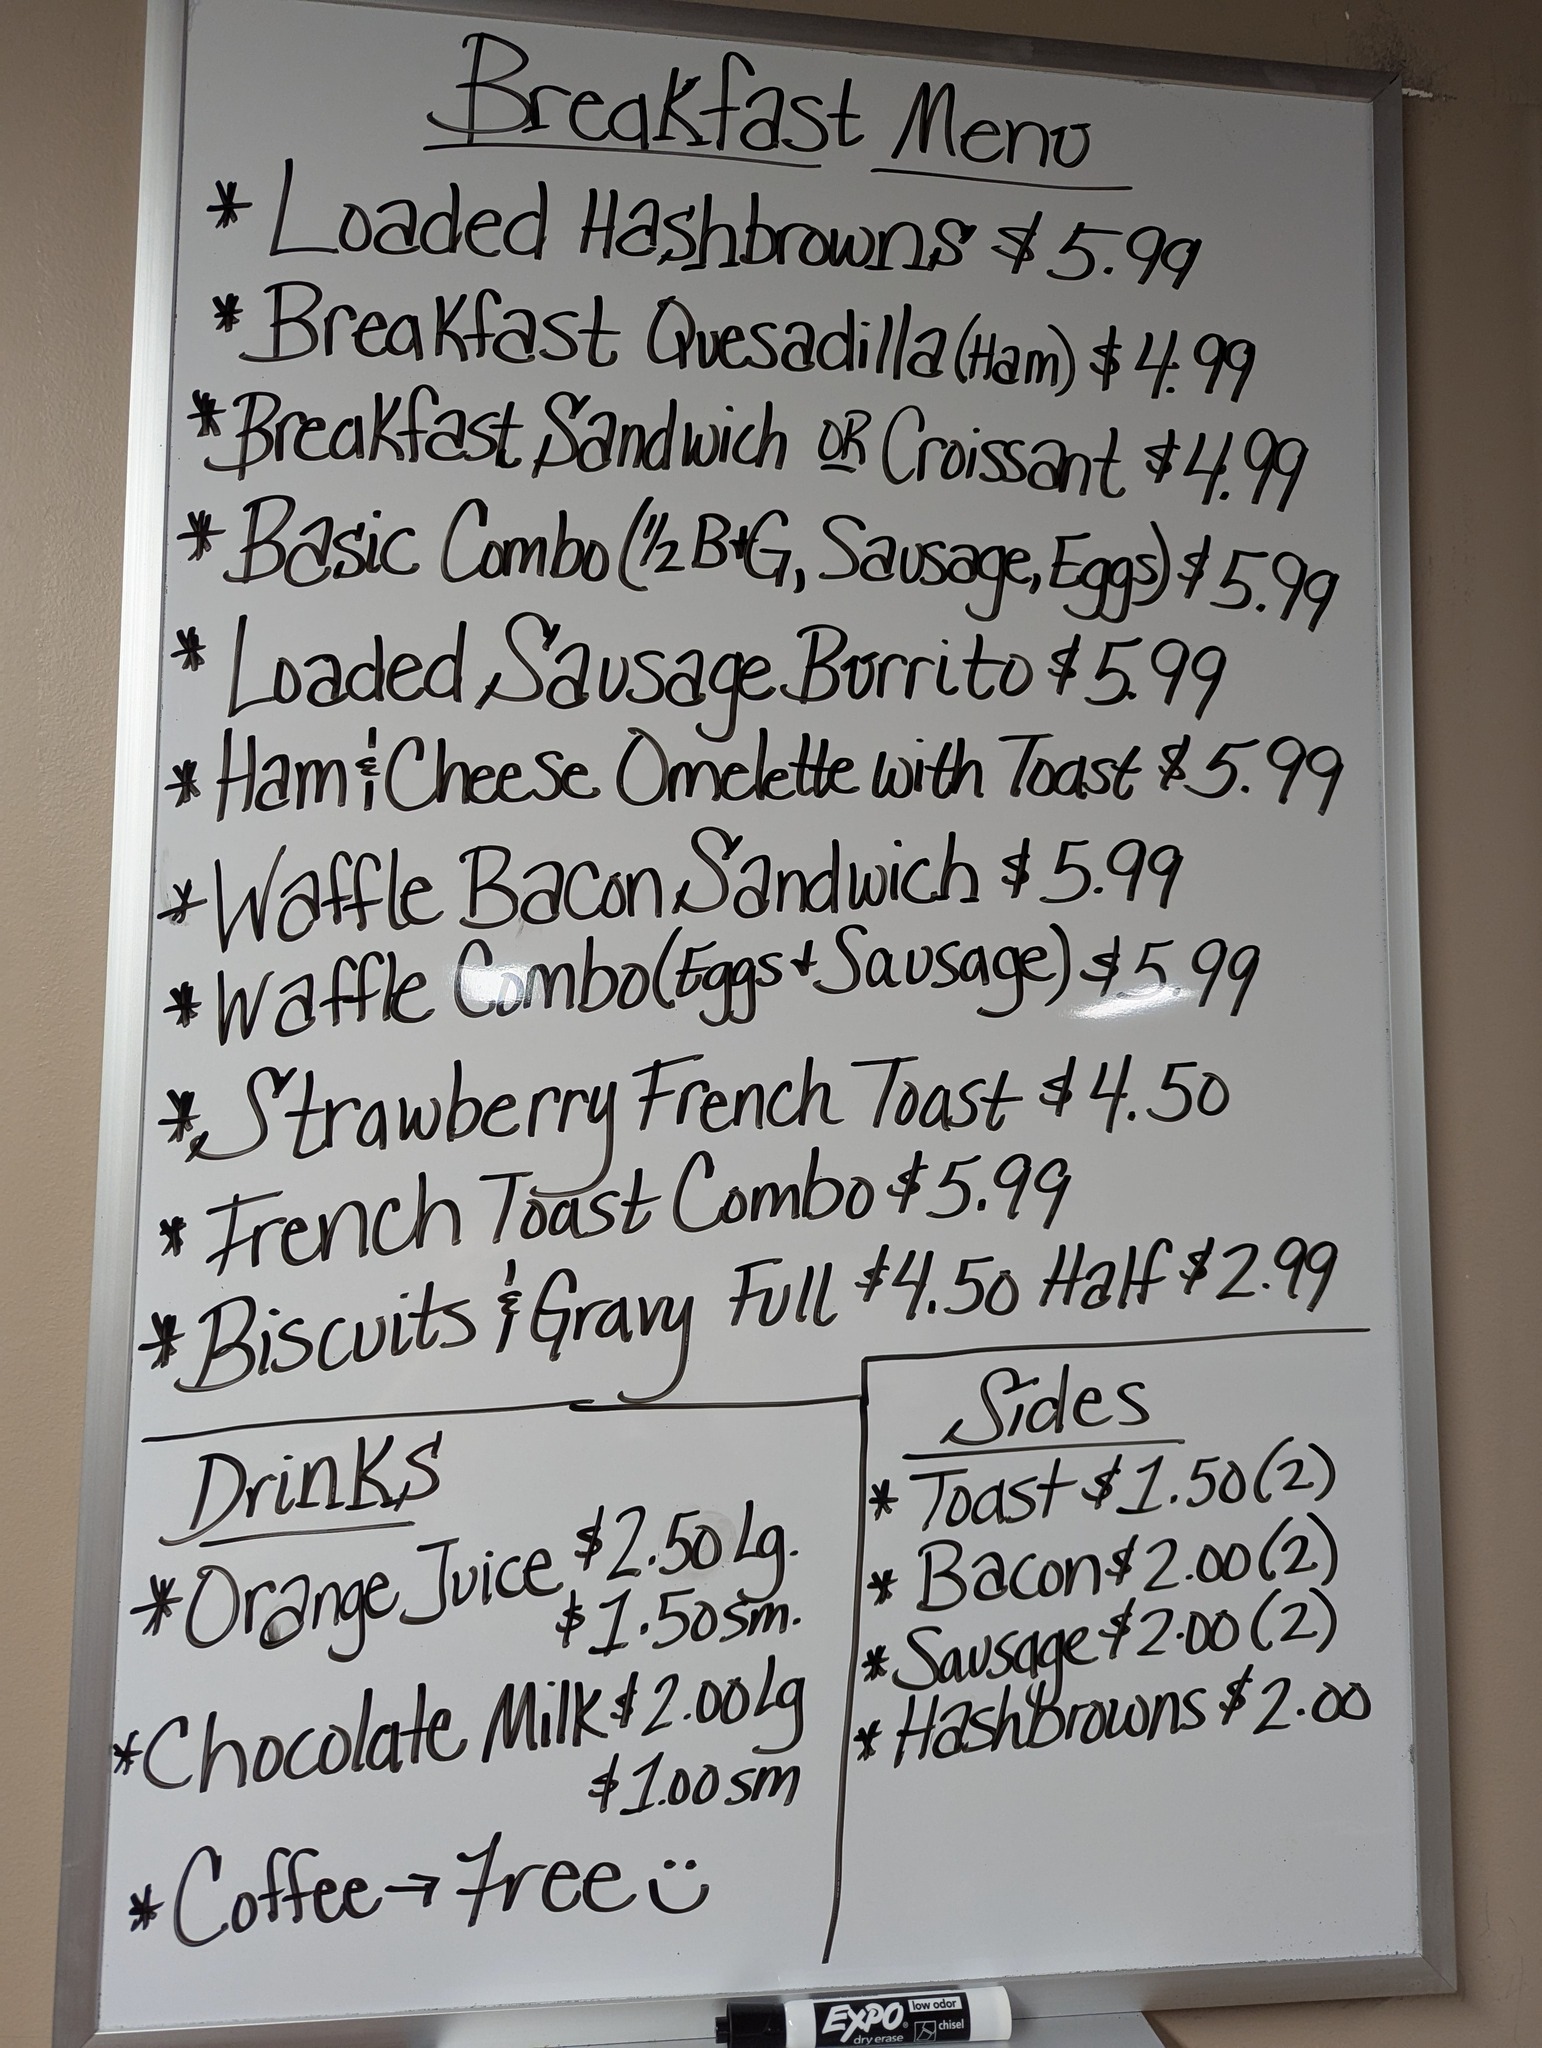 Breakfast Menu
* Loaded Hashbrowns $5.99
* Breakfast Quesadilla (Ham) $4.99
* Breakfast Sandwich OR Croissant $4.99
* Basic Combo (1/2 B+G, Sausage, Eggs) $5.99
* Loaded Sausage Burrito $5.99
* Ham & Cheese Omelette with Toast $5.99
* Waffle Bacon Sandwich $5.99
* Waffle Combo (Eggs + Sausage) $5.99
* Strawberry French Toast $4.50
* French Toast Combo $5.99
* Biscuits & Gravy Full $4.50 Half $2.99
Drinks
* Orange Juice $2.50 Lg.
$1.50 sm.
* Chocolate Milk $2.00 Lg
$1.00 sm
* Coffee → Free ü
Sides
* Toast $1.50 (2)
* Bacon $2.00 (2)
* Sausage $2.00 (2)
* Hashbrowns $2.00
EXPO® low odor
dry erase chisel